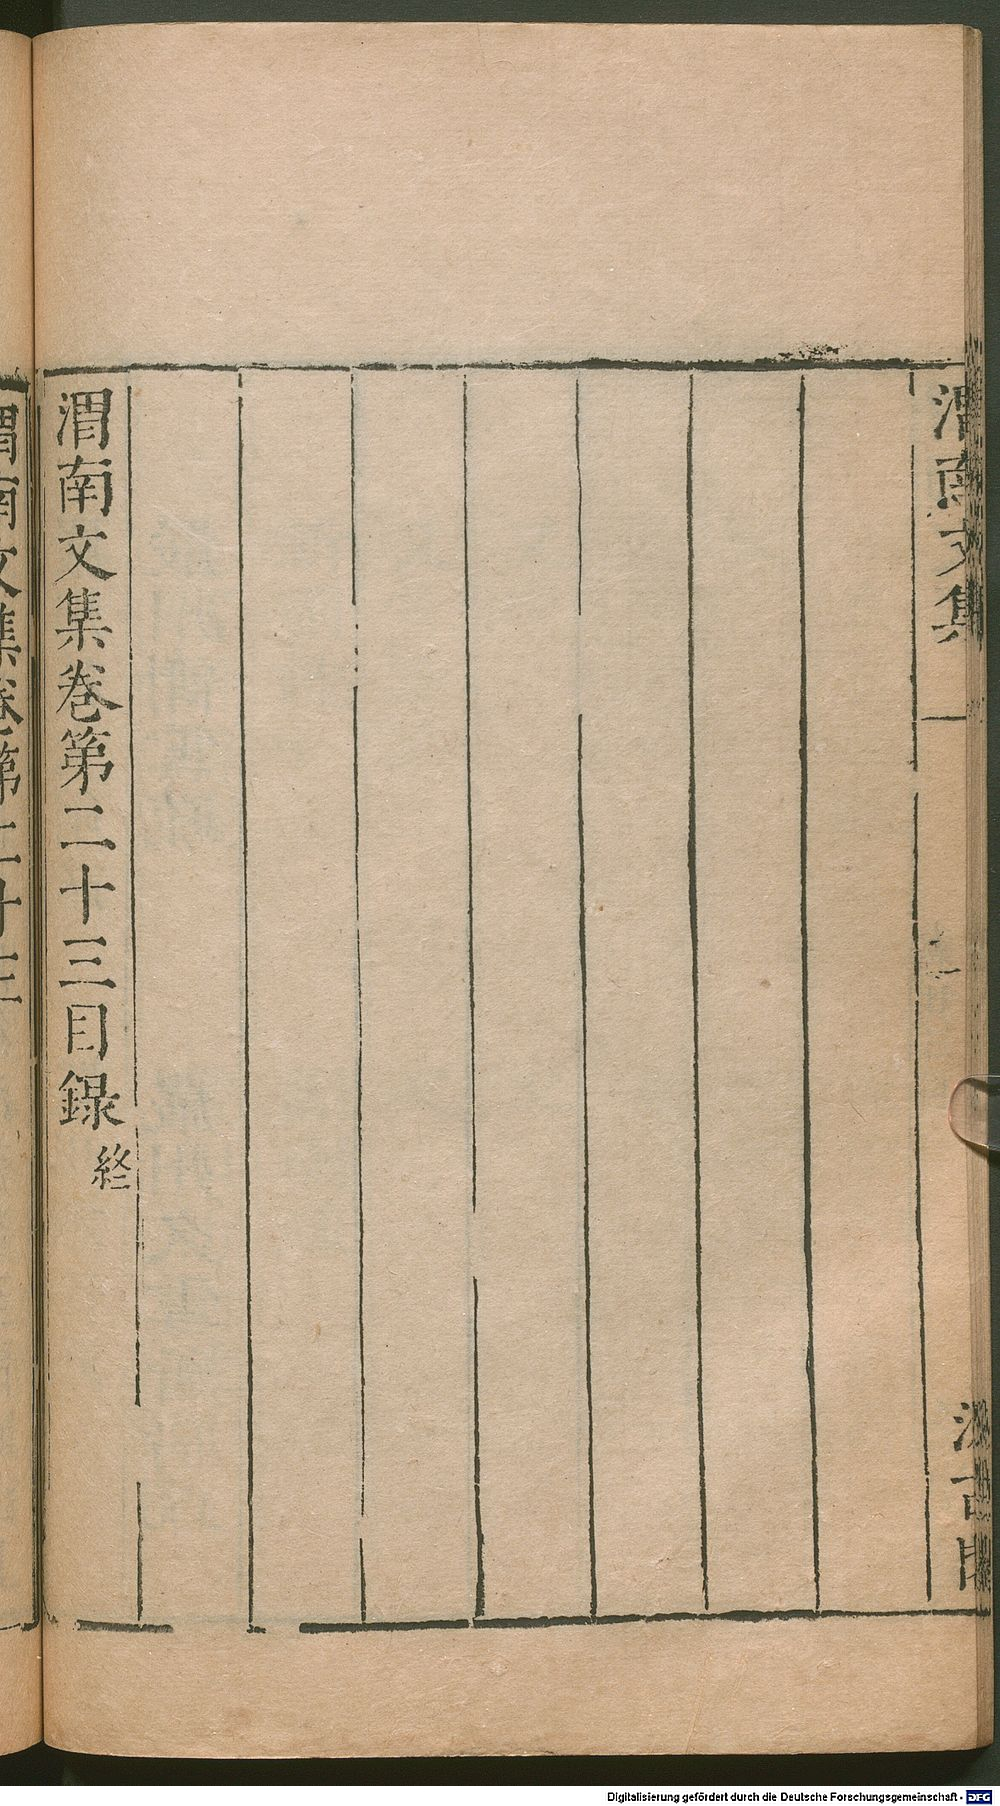 渭南文集
汲古閣
渭南文集卷第二十三目録終
渭南文集卷第二十三
Digitalisierung gefördert durch die Deutsche Forschungsgemeinschaft - DFG